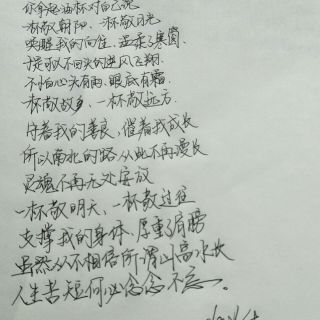 你拿起酒杯对自己说
一杯敬朝阳、一杯敬月光
唤醒我的向往，温柔了寒窗
于是可以不回头的逆风飞翔
不怕心头有雨，眼底有霜
一杯敬故乡，一杯敬远方
守着我的善良，催着我成长
所以南北的路从此不再漫长
灵魂不再无处安放
一杯敬明天，一杯敬过往
支撑我的身体，厚重了肩膀
虽然从不相信所谓山高水长
人生苦短何必念念不忘。